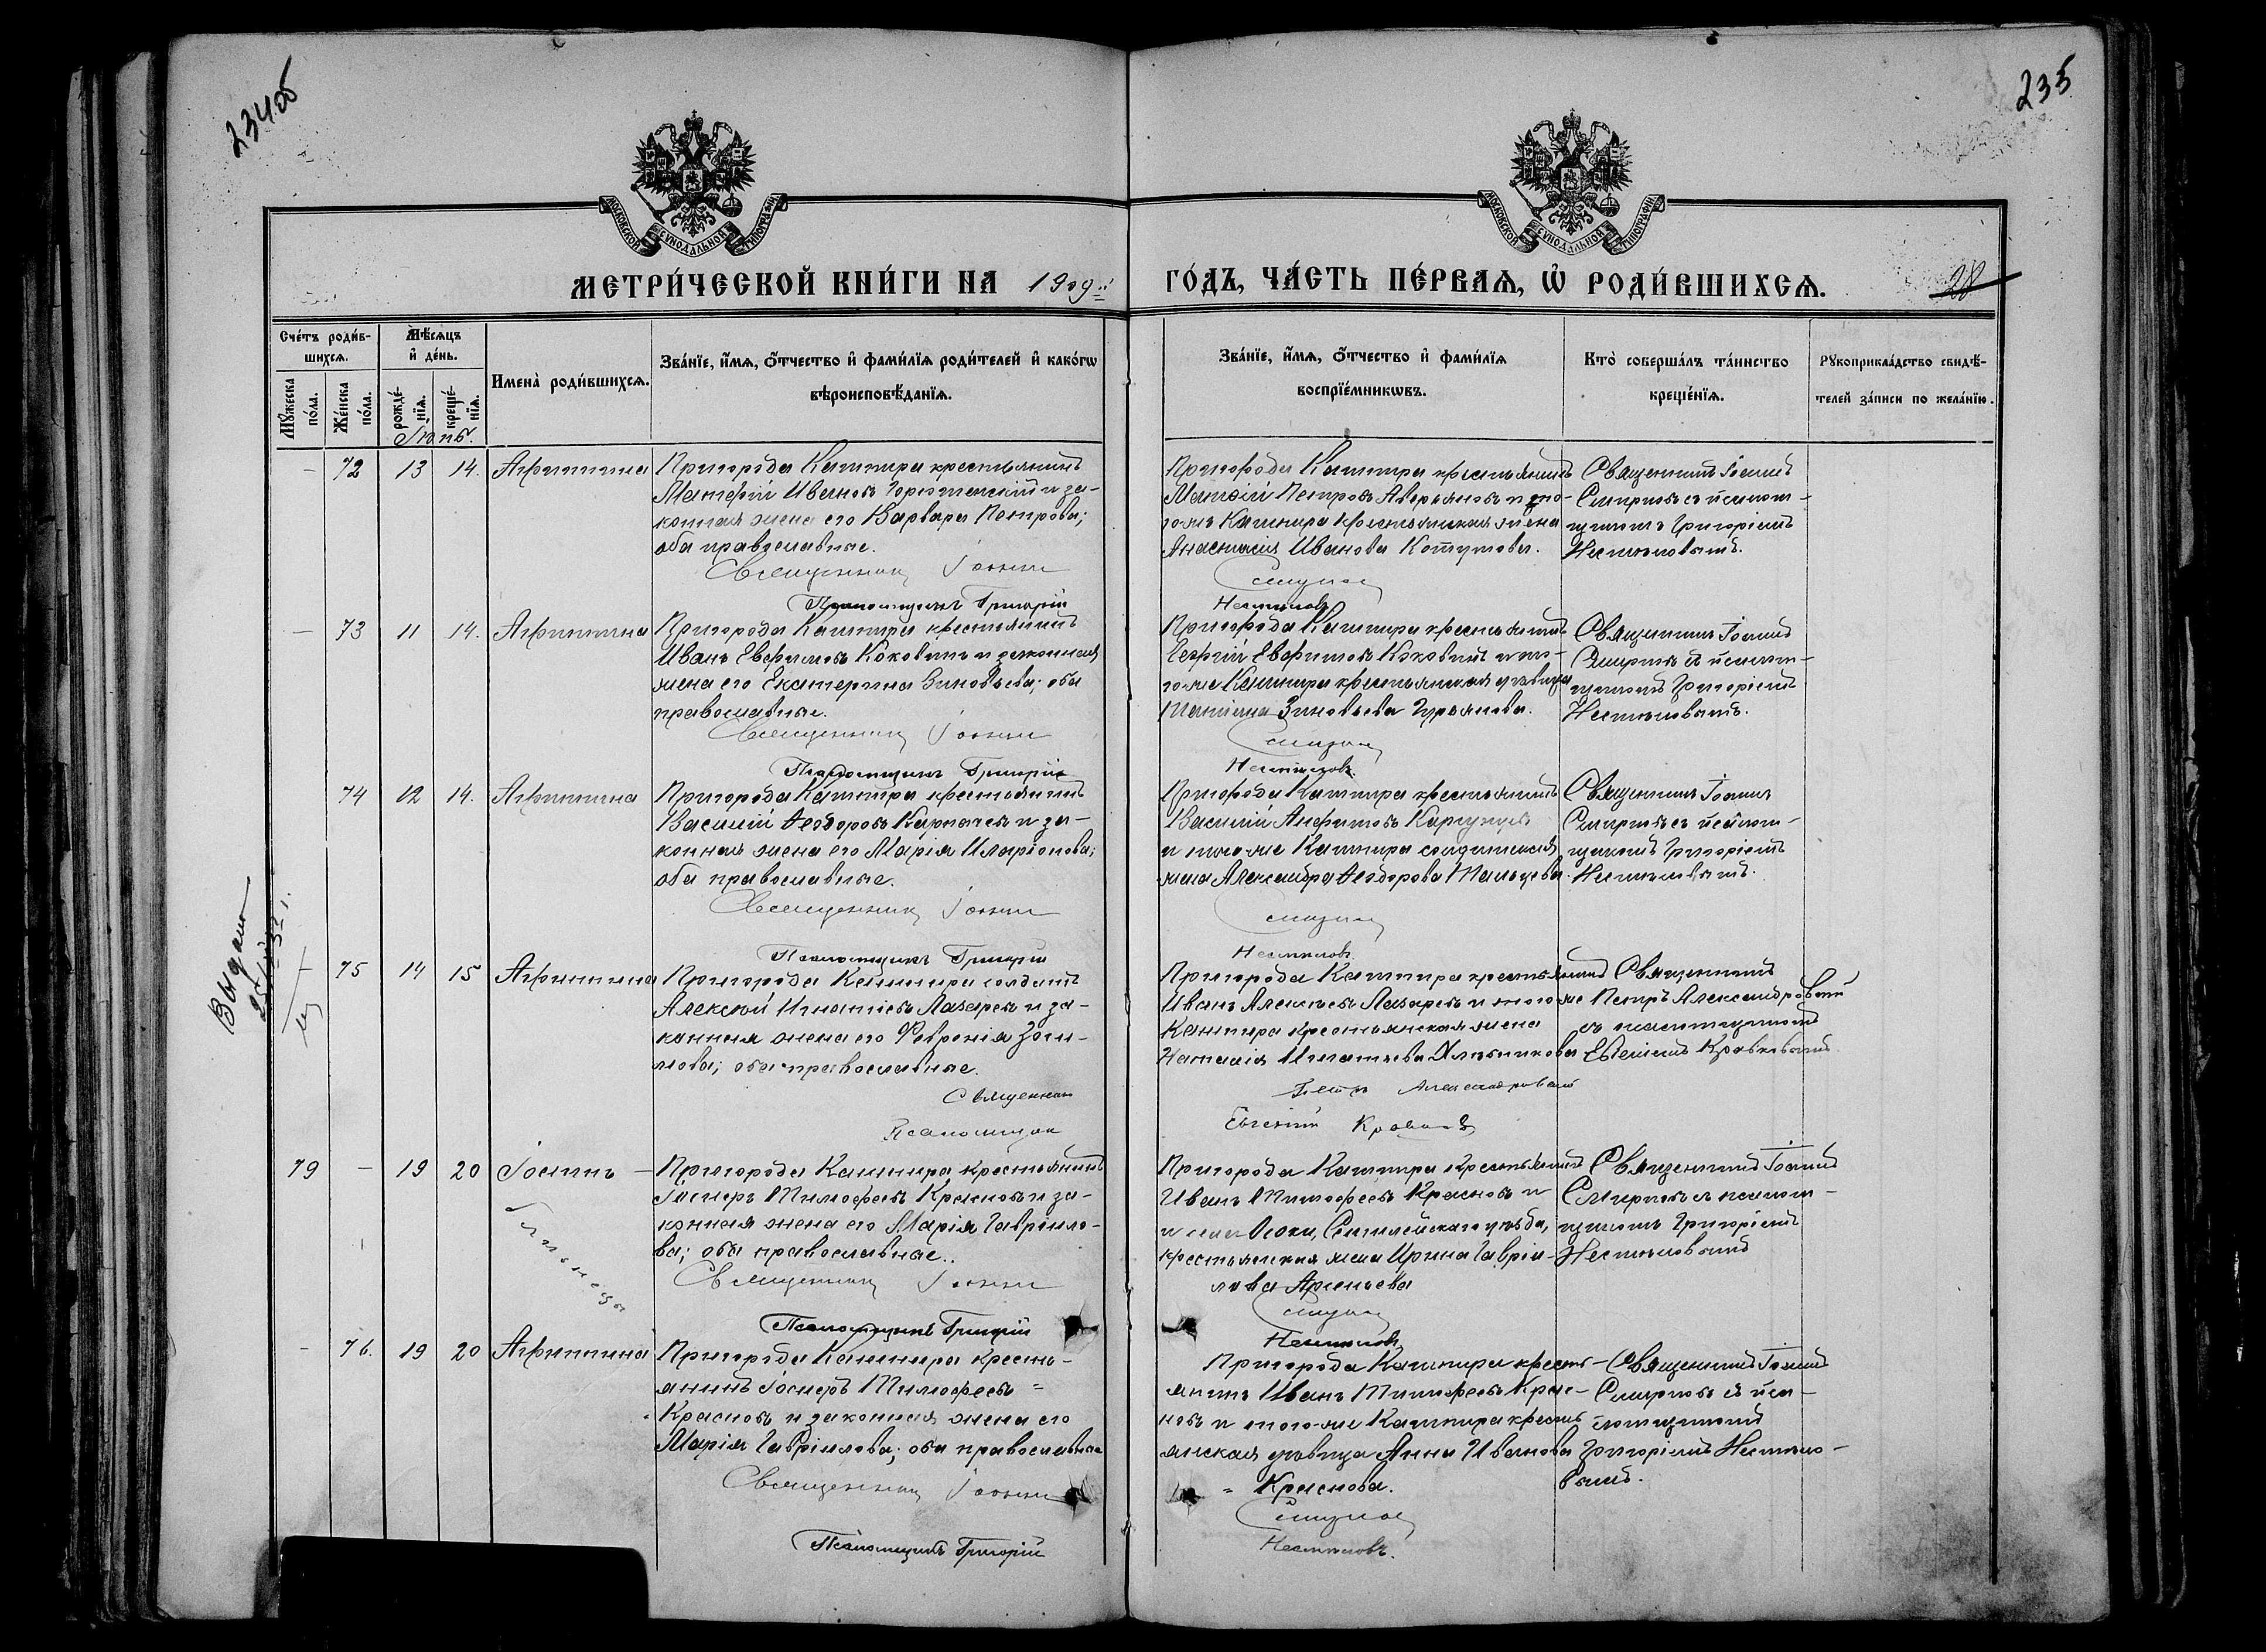 234об
235
МОСКОВСКОЙ СѴНОДАЛЬНОЙ ТИПОГРАФІИ
МОСКОВСКОЙ СѴНОДАЛЬНОЙ ТИПОГРАФІИ
МЕТРИ́ЧЕСКОЙ КНИ́ГИ НА 1909й ГО́ДЪ, ЧА́СТЬ ПЕ́РВАѦ, Ѡ҆ РОДИ́ВШИХСѦ.
28
Сче́тъ роди́в-
шихсѧ.
Мѣ́сѧцъ
и҆ де́нь.
Мꙋ́жеска по́ла.
Же́нска по́ла.
рожде́-
нїѧ.
креще́-
нїѧ.
Имена̀ роди́вшихсѧ.
Зва́нїе, и҆́мѧ, ѻ҆́тчество и҆ фами́лїѧ роди́телей и҆ како́гѡ
вѣроисповѣ́данїѧ.
Зва́нїе, и҆́мѧ, ѻ҆́тчество и҆ фами́лїѧ
воспрїе́мникѡвъ.
Кто̀ соверша́лъ та́инство
креще́нїѧ.
Рꙋкоприкла́дство свидѣ́-
телей за́писи по жела́нїю.
Іюнь.
– 72 13 14. Агриппина
Пригорода Кашпира крестьянинъ
Матфій Ивановъ и за-
конная жена его Варвара Петрова;
оба православные.
Священникъ Іоаннъ
Псаломщикъ Григорій
Пригорода Кашпира крестьянинъ
Матвѣй Петровъ Аверьяновъ и того-
же Кашпира крестьянская жена
Анастасія Иванова
Смирнов
Несмѣлов
Священникъ Іоаннъ
Смирновъ съ псалом-
щикомъ Григоріемъ
Несмѣловымъ.
– 73 11 14. Агриппина
Пригорода Кашпира крестьянинъ
Иванъ Евфимовъ Коковинъ и законная
жена его Екатерина Зиновьева; оба
православные.
Священникъ Іоаннъ
Псаломщикъ Григорій
Пригорода Кашпира крестьянинъ
Георгій Евфимовъ Коковинъ и то-
го-же Кашпира крестьянская дѣвица
Татіана Зиновьева Гурьянова.
Смирнов
Несмѣловъ.
Священникъ Іоаннъ
Смирновъ съ псалом-
щикомъ Григоріемъ
Несмѣловымъ.
74 12 14. Агриппина
Пригорода Кашпира крестьянинъ
Василій Ѳеодоровъ Карпачевъ и за-
конная жена его Марія Иларіонова;
оба православные.
Священникъ Іоаннъ
Псаломщикъ Григорій
Пригорода Кашпира крестьянинъ
Василій Анфимовъ
и того-же Кашпира солдатская
жена Александра Ѳеодорова Мальцева.
Смирнов
Несмѣловъ
Священникъ Іоаннъ
Смирновъ съ псалом-
щикомъ Григоріемъ
Несмѣловымъ.
Выдано
75 14 15 Агриппина
Пригорода Кашпира солдатъ
Алексѣй Игнатіевъ Лазаревъ и за-
конная жена его Февронія Зоти-
кова; оба православные.
Священник
Псаломщик
Пригорода Кашпира крестьянинъ
Иванъ Алексѣевъ Лазаревъ и того-же
Кашпира крестьянская жена
Наталія Игнатьева Хлѣбникова
Петръ Александровскій
Евгеній Кравков
Священникъ
Петръ Александровскій
съ псаломщикомъ
Евгеніемъ Кравковымъ.
79 – 19 20 Іоаннъ –
близнецы
Пригорода Кашпира крестьянинъ
Іосифъ Тимофеевъ Красновъ и за-
конная жена его Марія Гавріило-
ва; оба православные.
Священникъ Іоаннъ
Псаломщикъ Григорій
Пригорода Кашпира крестьянинъ
Иванъ Тимофеевъ Красновъ и
и села Осоки, Сенгилейскаго уѣзда,
крестьянская жена Ирина Гавріи-
лова Арженьева
Смирнов
Несмѣловъ
Священникъ Іоаннъ
Смирновъ съ псалом-
щикомъ Григоріемъ
Несмѣловымъ
– 76. 19 20 Агриппина
Пригорода Кашпира кресть-
янинъ Іосифъ Тимофеевъ
Красновъ и законная жена его
Марія Гавріилова; оба православные
Священникъ Іоаннъ
Псаломщикъ Григорій
Пригорода Кашпира кресть-
янинъ Иванъ Тимофеевъ Крас-
новъ и того-же Кашпира кресть-
янская дѣвица Анна Иванова
Краснова.
Смирнов
Несмѣловъ.
Священникъ Іоаннъ
Смирновъ съ пса-
ломщикомъ
Григоріемъ Несмѣло-
вымъ.